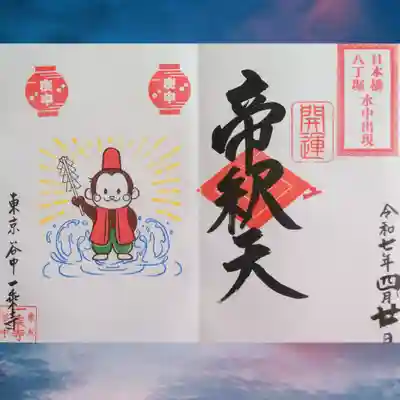 日本橋
八丁堀
水中出現
開運
帝釈天
令和七年四月廿日
庚申
庚申
東京 谷中 一乗寺